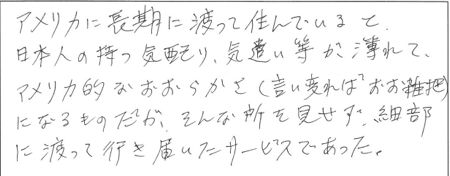 アメリカに長期に渡って住んでいると、
日本人の持つ気配り、気遣い等が薄れて、
アメリカ的なおおらかさ(言い変れば"おお雑把)
になるものだが、そんな所を見せず、細部
に渡って行き届いたサービスであった。